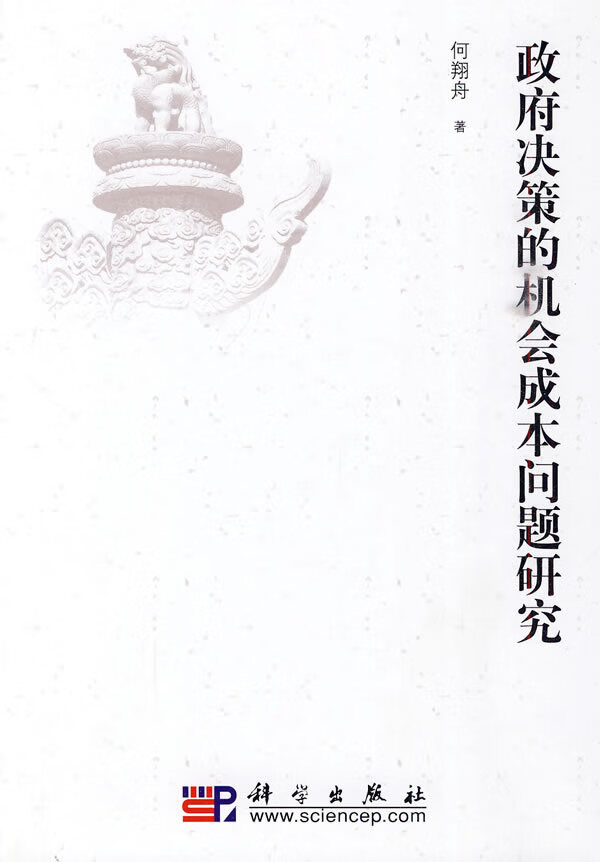 政府决策的机会成本问题研究
何翔舟 著
科学出版社
www.sciencep.com